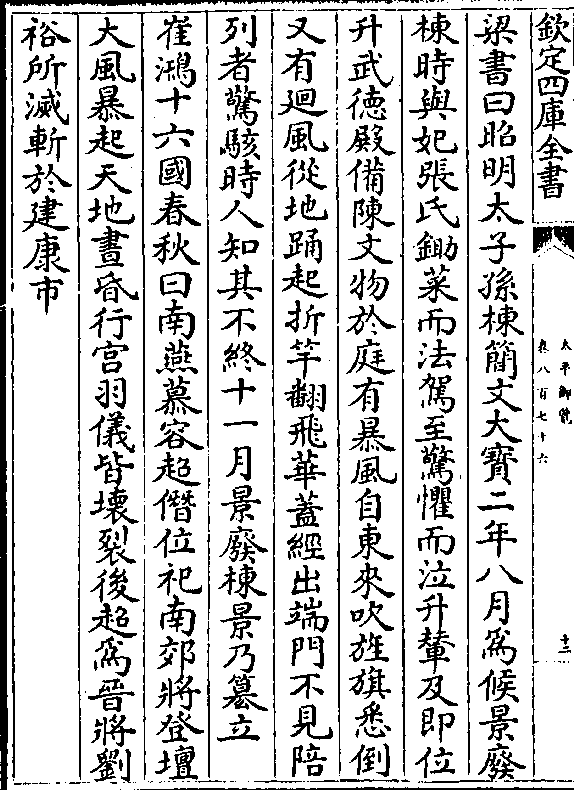 欽定四庫全書
太平御覽
卷八百七十六
十二
梁書曰昭明太子孫棟簡文大寶二年八月為候景廢
棟時與妃張氏鋤菜而法駕至驚懼而泣升輦及即位
升武德殿備陳文物於庭有暴風自東來吹旌旗悉倒
又有廻風從地踊起折竿翻飛華蓋經出端門不見陪
列者驚駭時人知其不終十一月景廢棟景乃簒立
崔鴻十六國春秋曰南燕慕容超僭位祀南郊將登壇
大風暴起天地晝昏行宫羽儀皆壊裂後超為晉將劉
裕所滅斬於建康市